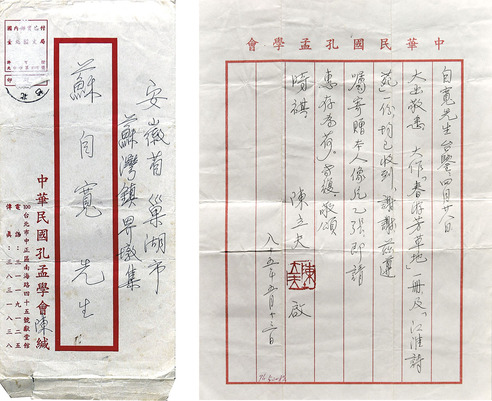 安徽省 巢湖市
蘇灣鎮界墩集
蘇自寬 先生
中華民國孔孟學會 陳緘
100台北市中正區南海路四十五號獻堂館
電話：三一一九一二五
傳真：三八三一八三八
中華民國孔孟學會
自寬先生台鑒四月廿八日
大出敬悉 大作「春游芳草地」一冊及「江淮詩
苑」一份，均已收到，謝謝。茲遵
囑寄贈本人像片乙張，即請
惠存為荷。
時祺 陳立夫 啟
八十五年五月十三日